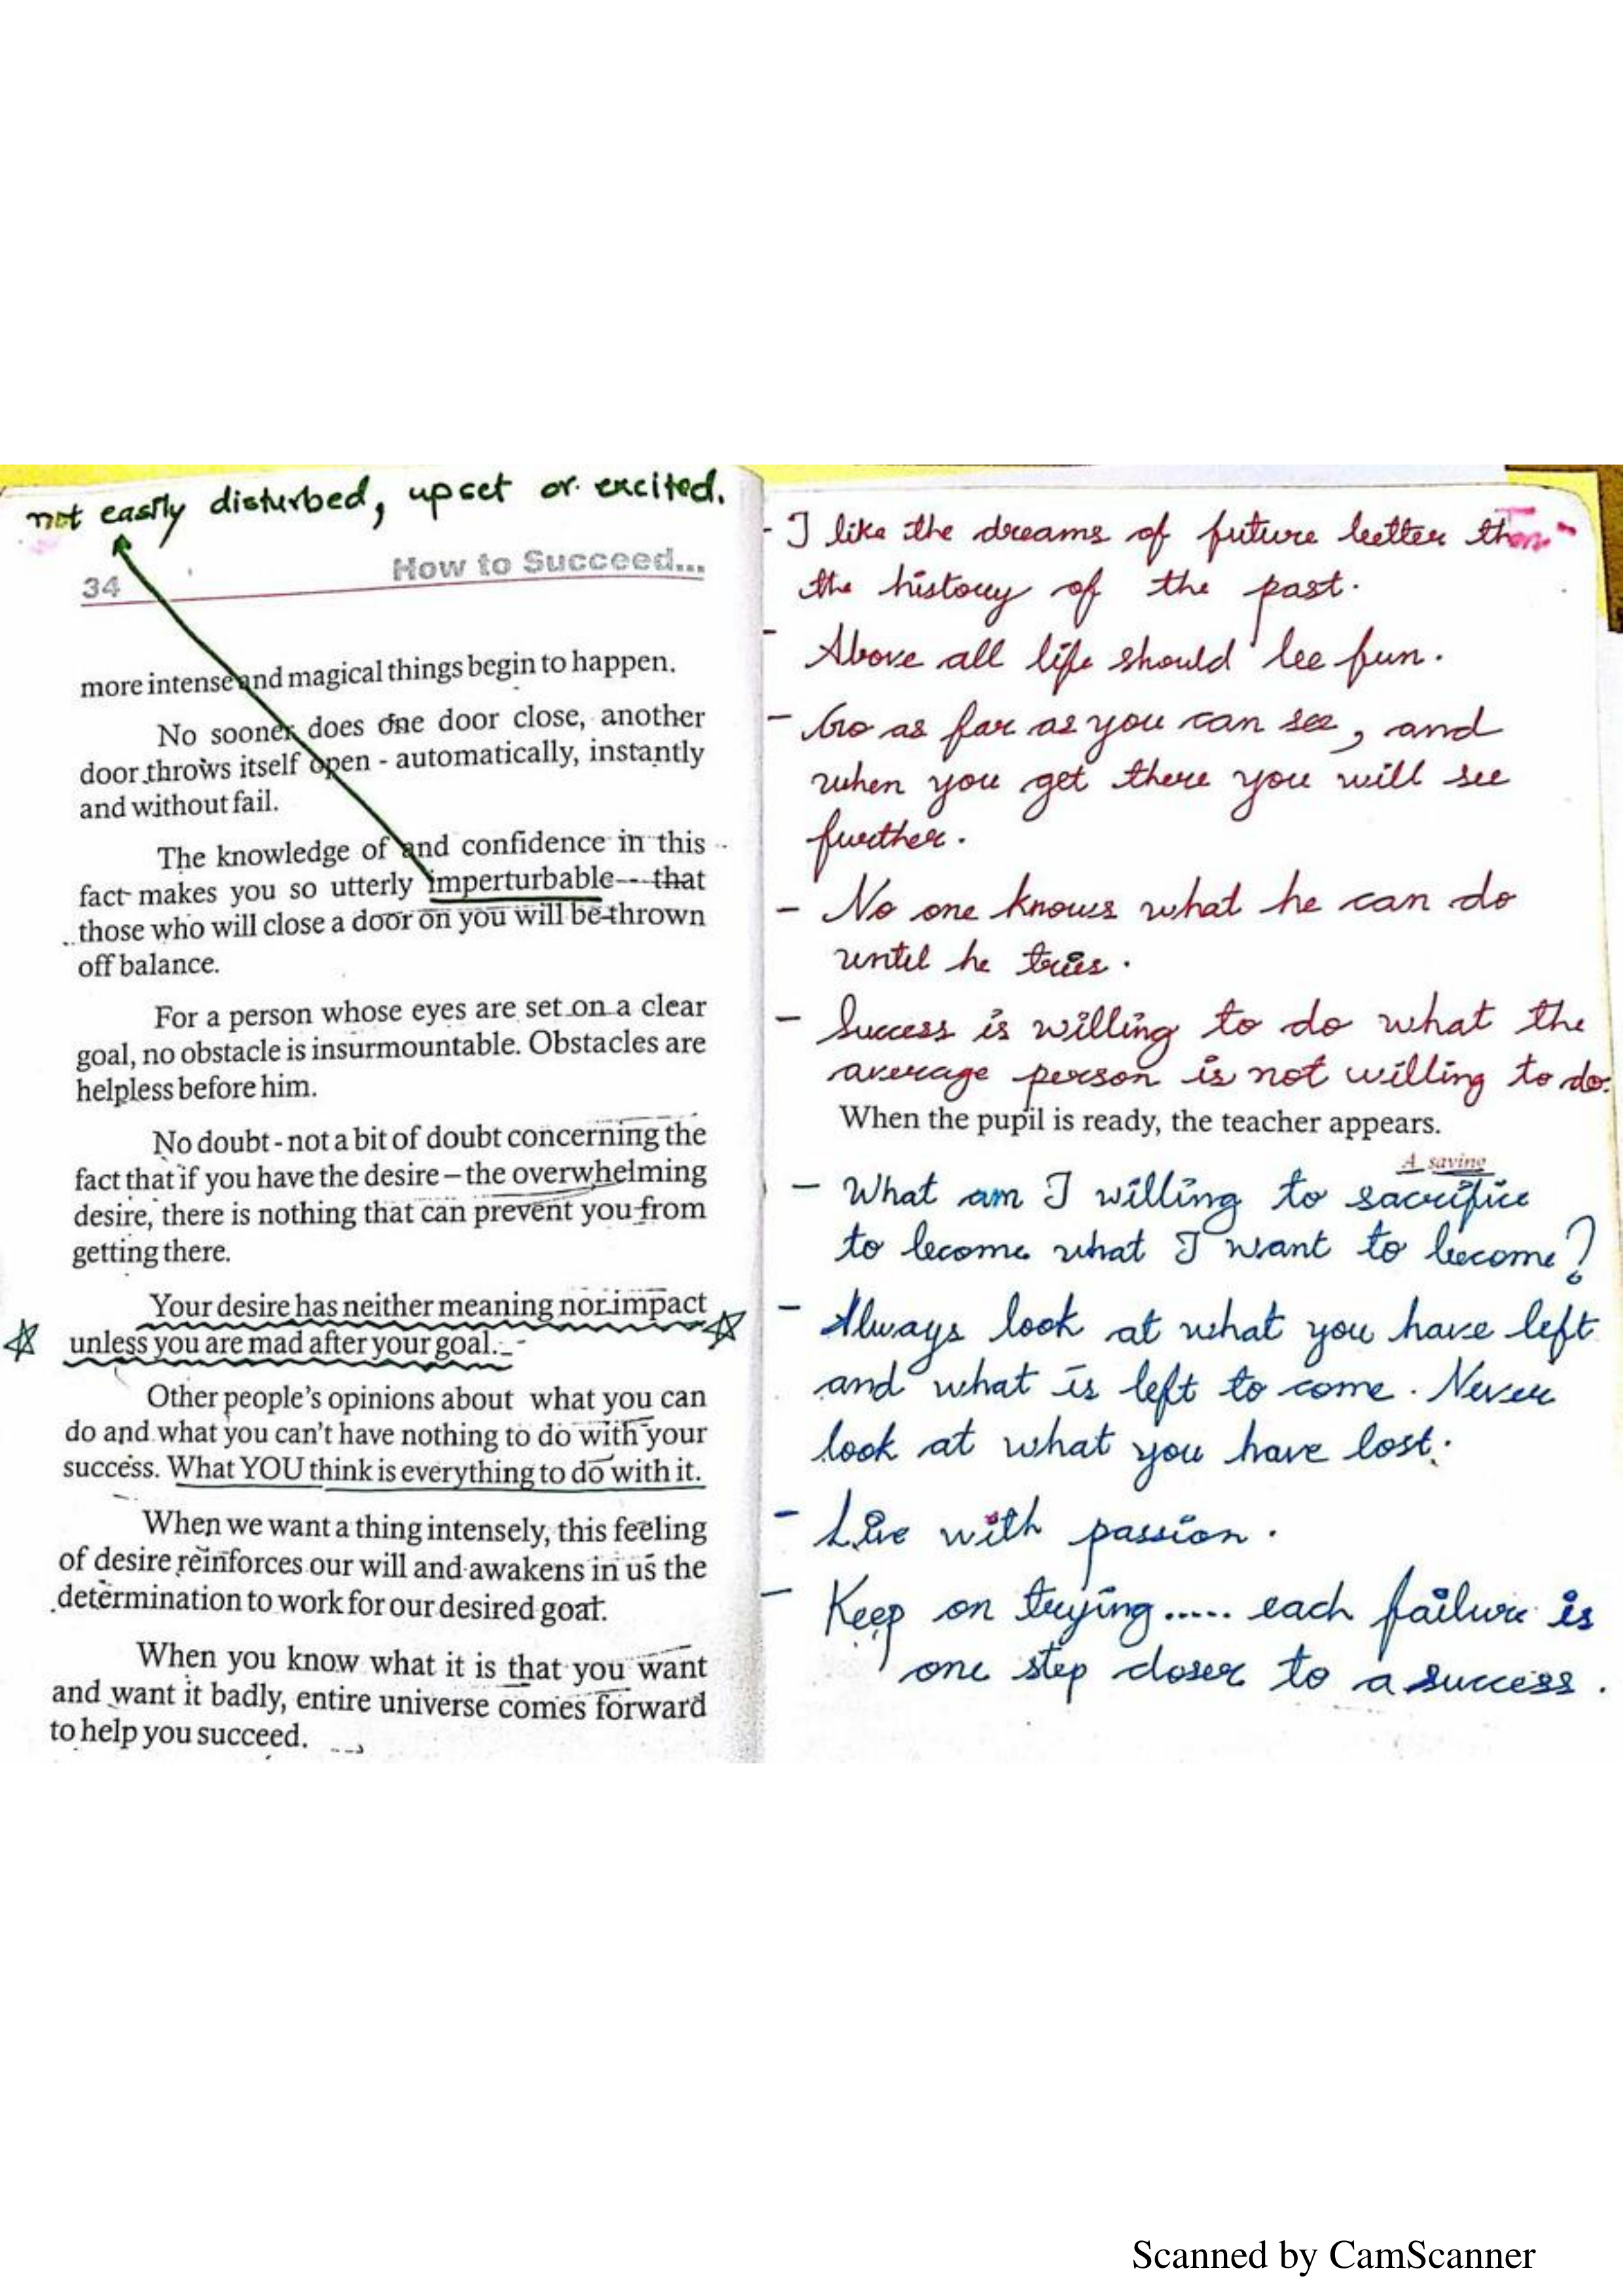 not easily disturbed, upset or excited.
34
How to Succeed...
more intense and magical things begin to happen.
No sooner does one door close, another
door throws itself open - automatically, instantly
and without fail.
The knowledge of and confidence in this
fact makes you so utterly imperturbable - that
those who will close a door on you will be thrown
off balance.
For a person whose eyes are set on a clear
goal, no obstacle is insurmountable. Obstacles are
helpless before him.
No doubt - not a bit of doubt concerning the
fact that if you have the desire – the overwhelming
desire, there is nothing that can prevent you from
getting there.
Your desire has neither meaning nor impact
unless you are mad after your goal.
Other people's opinions about what you can
do and what you can't have nothing to do with your
success. What YOU think is everything to do with it.
When we want a thing intensely, this feeling
of desire reinforces our will and awakens in us the
determination to work for our desired goal.
When you know what it is that you want
and want it badly, entire universe comes forward
to help you succeed.
- I like the dreams of future better than
the history of the past.
- Above all life should be fun.
- Go as far as you can see, and
when you get there you will see
further.
- No one knows what he can do
until he tries.
- Success is willing to do what the
average person is not willing to do.
When the pupil is ready, the teacher appears.
A saying
- What am I willing to sacrifice
to become what I want to become?
- Always look at what you have left
and what is left to come. Never
look at what you have lost.
- Live with passion.
- Keep on trying..... each failure is
one step closer to a success.
Scanned by CamScanner